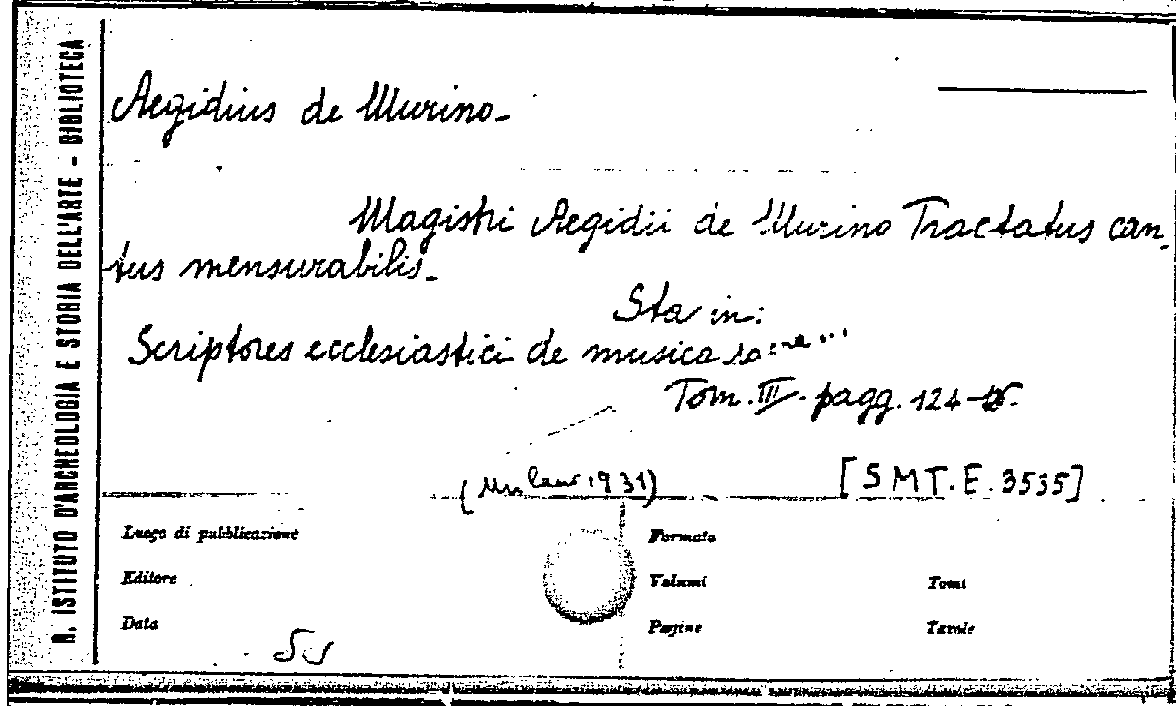 R. ISTITUTO D'ARCHEOLOGIA E STORIA DELL'ARTE - BIBLIOTECA
Aegidius de Murino -
Magistri Aegidii de Murino Tractatus can-
tus mensurabilis -
Sta in:
Scriptores ecclesiastici de musica
Tom. III - pagg. 124-
(Milano 1931)
[SMT.E.3535]
Luogo di pubblicazione
Formato
Editore
Volumi
Tomi
Data
Pagine
Tavole